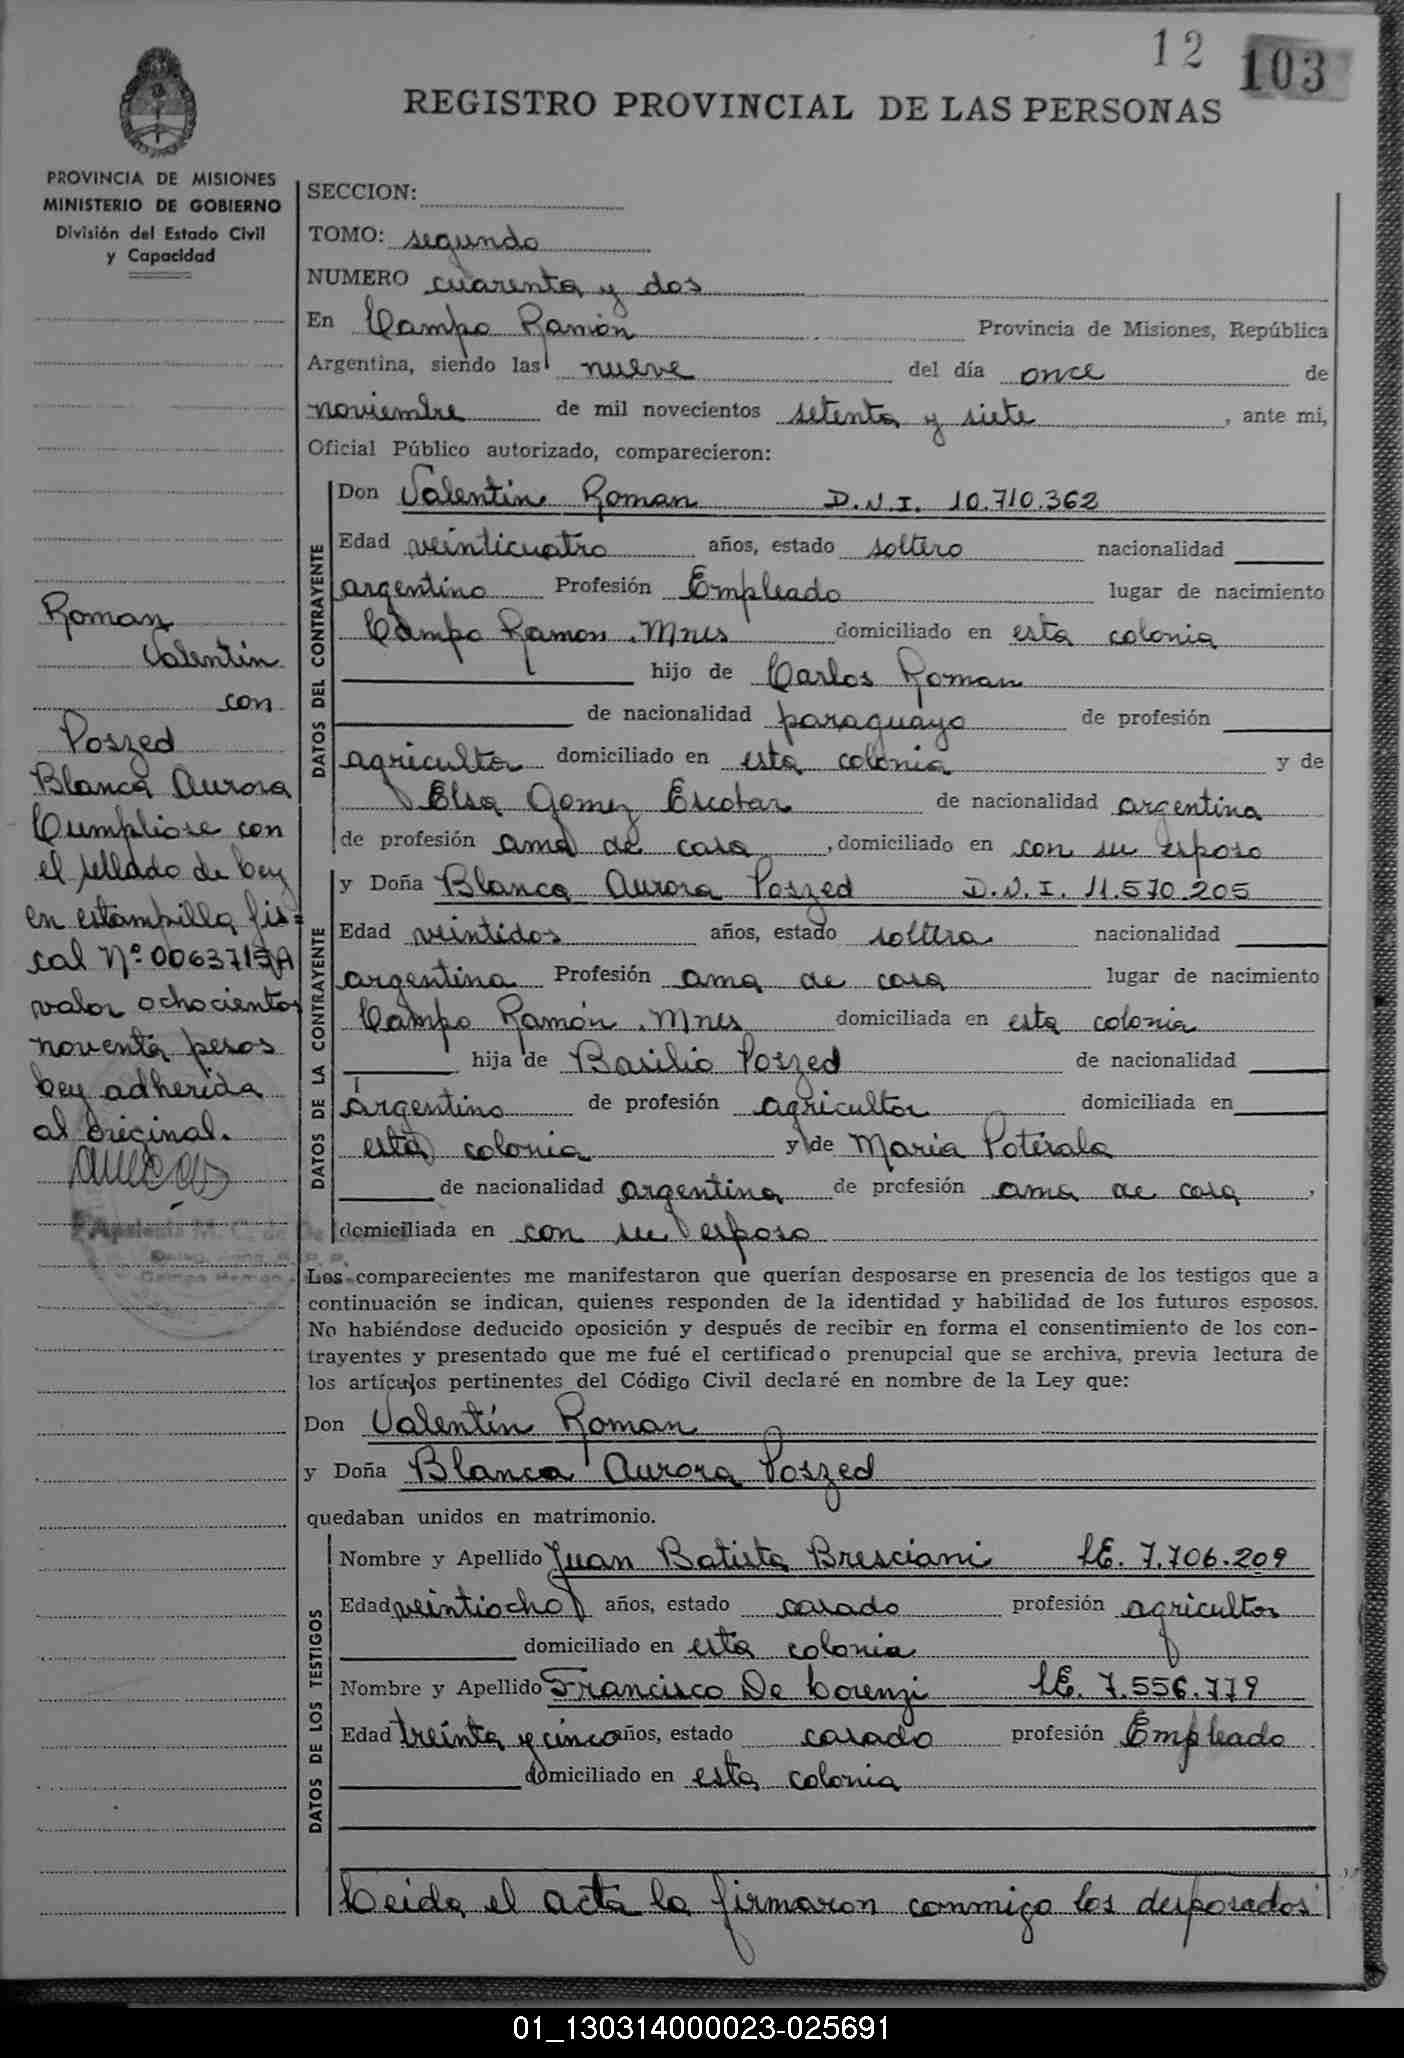 12 103
REGISTRO PROVINCIAL DE LAS PERSONAS
PROVINCIA DE MISIONES
MINISTERIO DE GOBIERNO
División del Estado Civil
y Capacidad
Roman
Valentín
con
Poszed
Blanca Aurora
Cumpliose con
el sellado de Ley
en estampilla fis=
cal Nº
valor ochocientos
noventa pesos
Ley adherida
al original.
SECCION:
TOMO: segundo
NUMERO cuarenta y dos
En Campo Ramón Provincia de Misiones, República
Argentina, siendo las nueve del día once de
noviembre de mil novecientos setenta y siete, ante mi,
Oficial Público autorizado, comparecieron:
DATOS DEL CONTRAYENTE
Don Valentín Roman D.N.I. 10.710.362
Edad veinticuatro años, estado soltero nacionalidad
argentino Profesión Empleado lugar de nacimiento
Campo Ramon. Mnes domiciliado en esta colonia
hijo de Carlos Roman
de nacionalidad paraguayo de profesión
agricultor domiciliado en esta colonia y de
Elsa Gomez Escobar de nacionalidad argentina
de profesión ama de casa, domiciliado en con su esposo
DATOS DE LA CONTRAYENTE
y Doña Blanca Aurora Poszed D.N.I. 11.570.205
Edad veintidos años, estado soltera nacionalidad
argentina Profesión ama de casa lugar de nacimiento
Campo Ramón. Mnes domiciliada en esta colonia
hija de Basilio Poszed de nacionalidad
argentino de profesión agricultor domiciliada en
esta colonia y de Maria Poterala
de nacionalidad argentina de profesión ama de casa,
domiciliada en con su esposo
Los comparecientes me manifestaron que querían desposarse en presencia de los testigos que a
continuación se indican, quienes responden de la identidad y habilidad de los futuros esposos.
No habiéndose deducido oposición y después de recibir en forma el consentimiento de los con-
trayentes y presentado que me fué el certificado prenupcial que se archiva, previa lectura de
los artículos pertinentes del Código Civil declaré en nombre de la Ley que:
Don Valentín Roman
y Doña Blanca Aurora Poszed
quedaban unidos en matrimonio.
DATOS DE LOS TESTIGOS
Nombre y Apellido Juan Batista Bresciani LE. 7.706.209
Edad veintiocho años, estado casado profesión agricultor
domiciliado en esta colonia
Nombre y Apellido Francisco De Lorenzi LE. 7.556.779
Edad treinta y cinco años, estado casado profesión Empleado
domiciliado en esta colonia
Leida el acta la firmaron conmigo los desposados
01_130314000023-025691